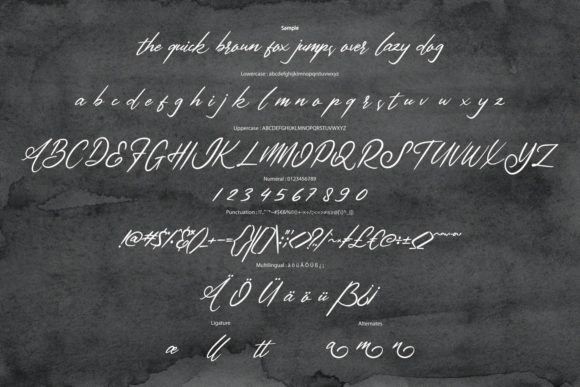 Sample
the quick brown fox jumps over lazy dog
Lowercase : abcdefghijklmnopqrstuvwxyz
a b c d e f g h i j k l m n o p q r s t u v w x y z
Uppercase : ABCDEFGHIJKLMNOPQRSTUVWXYZ
ABCDEFGHIJKLMNOPQRSTUVWXYZ
Numeral : 0123456789
1 2 3 4 5 6 7 8 9 0
Punctuation :
Multilingual : ä ö ü Ä Ö Ü ß ¿ ¡
Ä Ö Ü ä ö ü ß ¿ ¡
Ligature Alternates
æ ll tt a m n